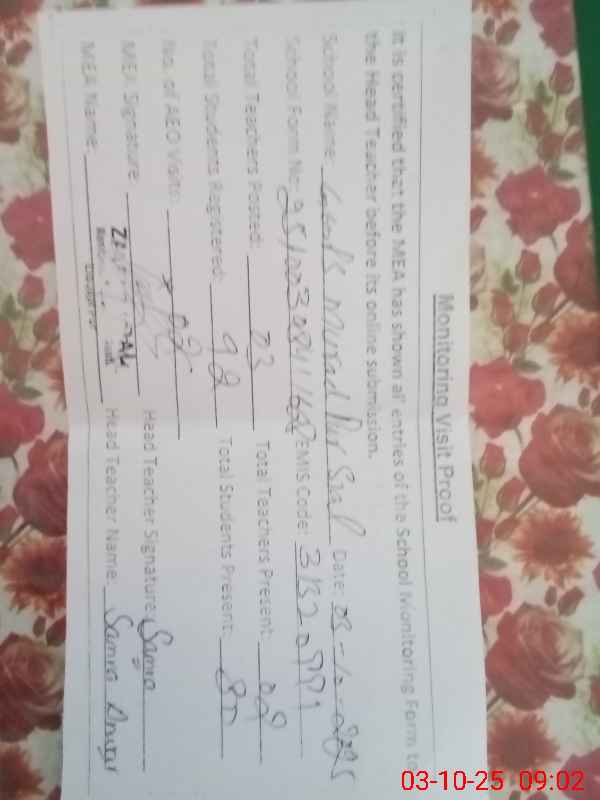 Monitoring Visit Proof
It is certified that the MEA has shown all entries of the School Monitoring Form to
the Head Teacher before its online submission.
School Name: Murad Pur Sial Date: 03-10-2025
School Form No: EMIS Code:
Total Teachers Posted: 03 Total Teachers Present: 02
Total Students Registered: 92 Total Students Present: 80
No. of AEO Visits: 02
MEA Signature: Head Teacher Signature: Samra
MEA Name: Head Teacher Name: Samra
03-10-25 09:02